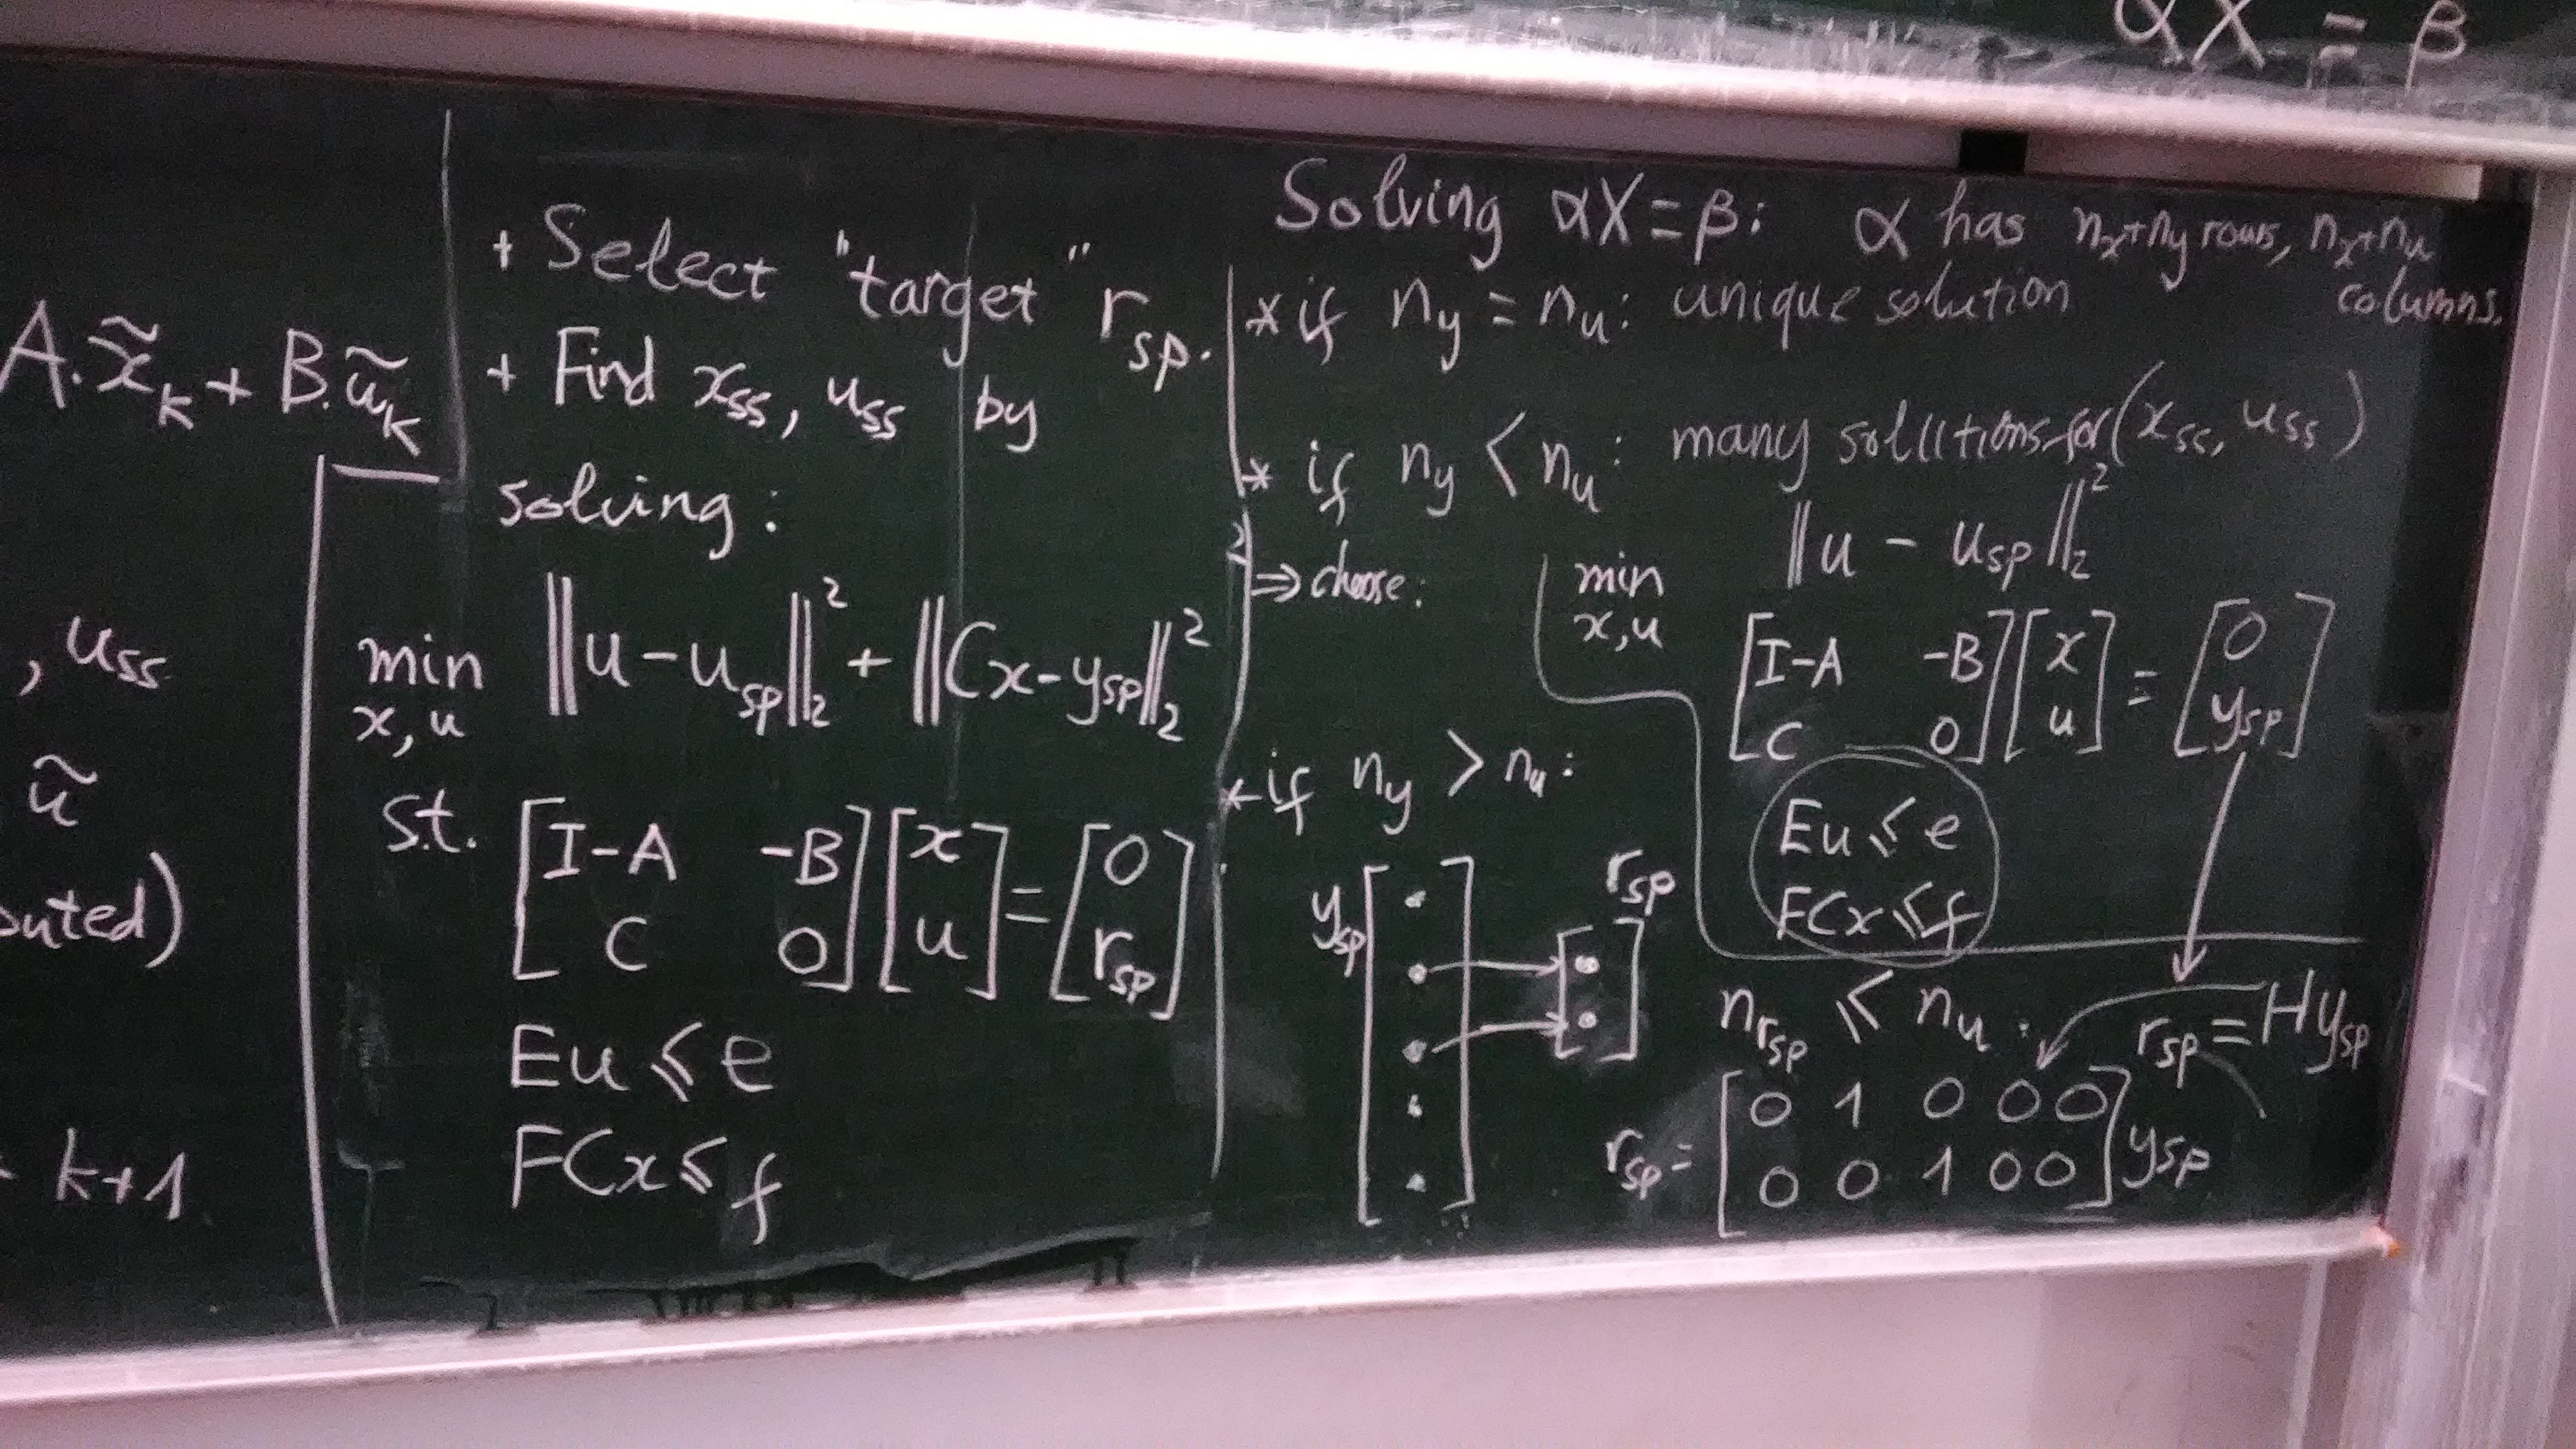 αX = β
A.x̃ₖ + B.ũₖ
, uss
ũ
outed)
k+1
+ Select "target" rsp.
+ Find xss, uss by
solving:
min ‖u - usp‖₂² + ‖Cx - ysp‖₂²
x, u
s.t. [I-A -B; C 0] [x; u] = [0; rsp]
Eu ⩽ e
FCx ⩽ f
Solving αX = β: α has nx+ny rows, nx+nu
columns.
* if ny = nu: unique solution
* if ny < nu: many solutions for (xss, uss)
⇒ choose: min ‖u - usp‖₂²
x, u
[I-A -B; C 0] [x; u] = [0; ysp]
Eu ⩽ e
FCx ⩽ f
* if ny > nu:
ysp
rsp
nrsp ⩽ nu. rsp = Hysp
rsp = [0 1 0 0 0; 0 0 1 0 0] ysp